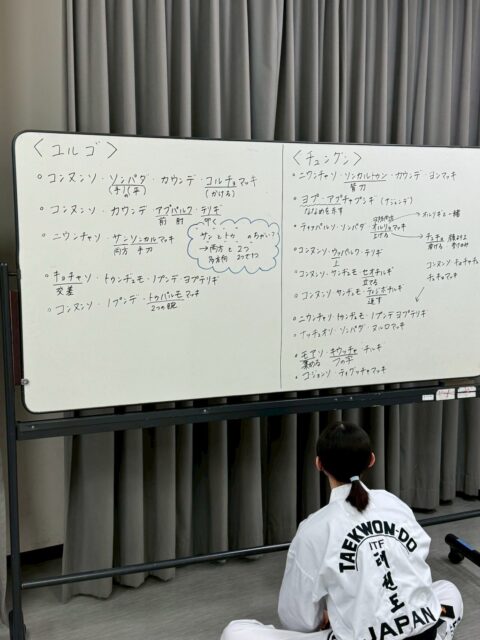 〈ユルゴ〉
○コンヌンソ・ソンパダ・カウンデ・コルチョマッキ
手(の)平
(かける)
○コンヌンソ・カウンデ アプパルク・テリギ
前 肘 叩く
○ニウンチャソ・サンソンカルマッキ
両方 手刀
サンとトゥ のちがい?
→両方と2つ
○キョチャソ・トゥンヂュモ・ノプンデ ヨプテリギ
交差
○コンヌンソ・ノプンデ・トゥパルモマッキ
2つの腕
〈チュングン〉
○ニウンチャソ・ソンカルトゥン・カウンデ・ヨンマッキ
背刀
○ヨプ・アプチャプシキ (ナジュンデ)
○ティッパルソ・ソンパダ・オルリョマッキ
上げる
○コンヌンソ・ウッパルク・テリギ
上
○コンヌンソ・サンヂュモ・セオチルギ
立てる
○コンヌンソ・サンヂュモ・ティジボチルギ
返す
○ニウンチャソ・トゥンヂュモ・ノプンデ ヨプテリギ
○ナッチュオソ・ソンパダ・ヌルロマッキ
○モアソ・キウッチャ・チルギ
集める フの字
○コジョンソ・ティグッチャマッキ
TAEKWON-DO
ITF
태권도
JAPAN